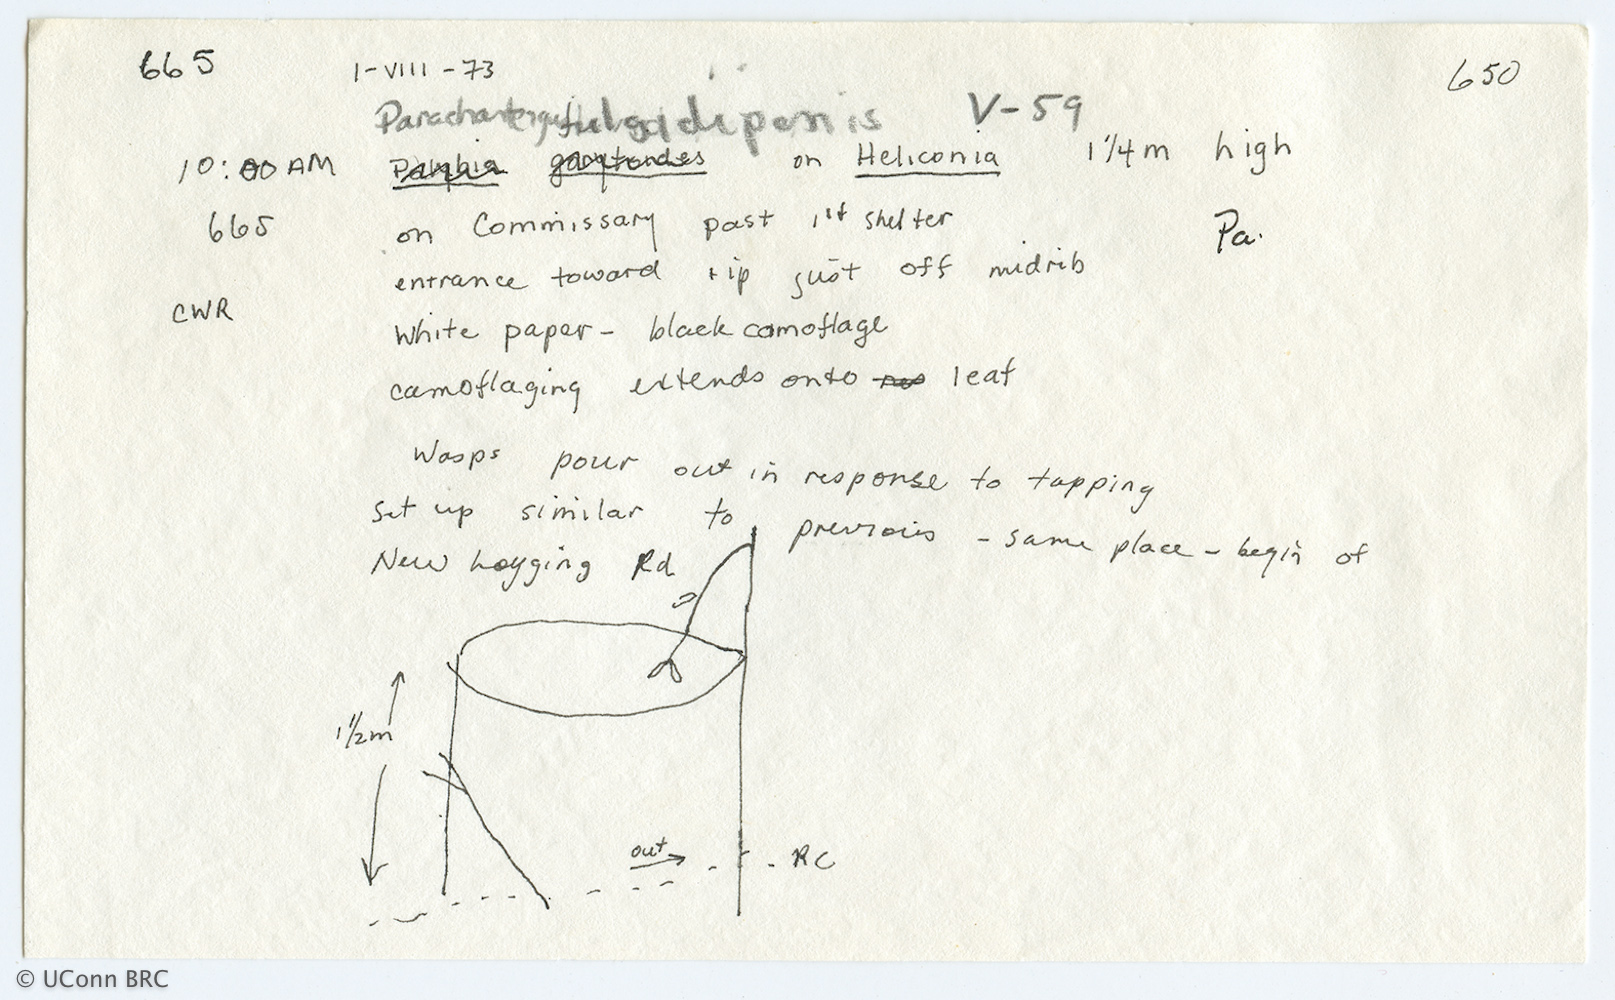 665 1-VIII-73 650
fulgidipennis V-59
10:00 AM on Heliconia 1 1/4 m high
665 on Commissary past 1st shelter Pa.
entrance toward tip just off midrib
CWR
White paper - black camoflage
camoflaging extends onto leaf
Wasps pour out in response to tapping
Set up similar to previous - same place - begin of
New Logging Rd
1 1/2 m
out
RC
© UConn BRC